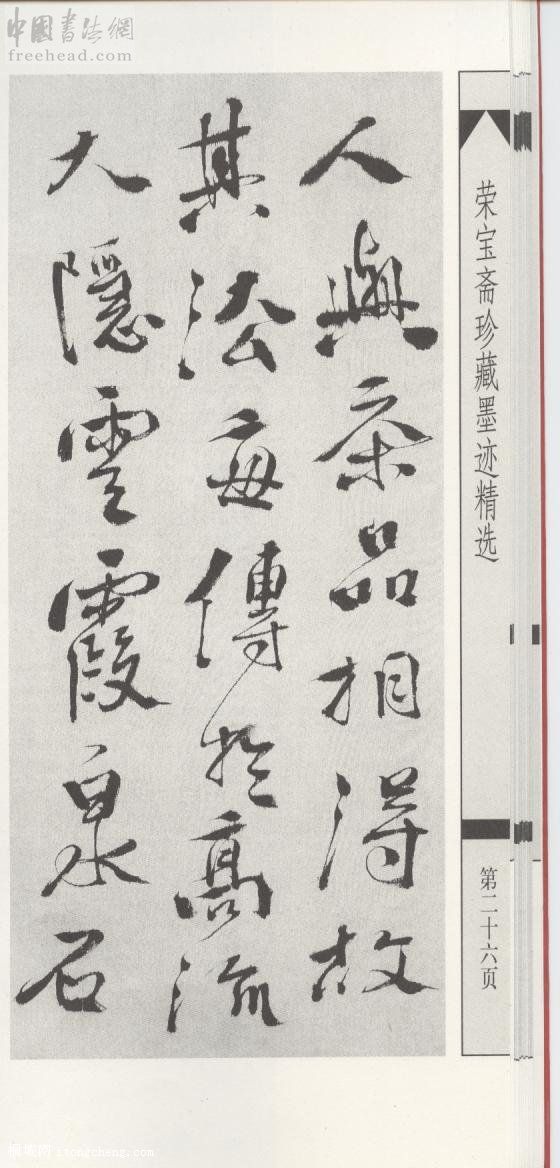 中國書法網
freehead.com
人與茶品相得故
其法每傳於高流
大隱雲霞泉石
荣宝斋珍藏墨迹精选
第二十六页
itongcheng.com